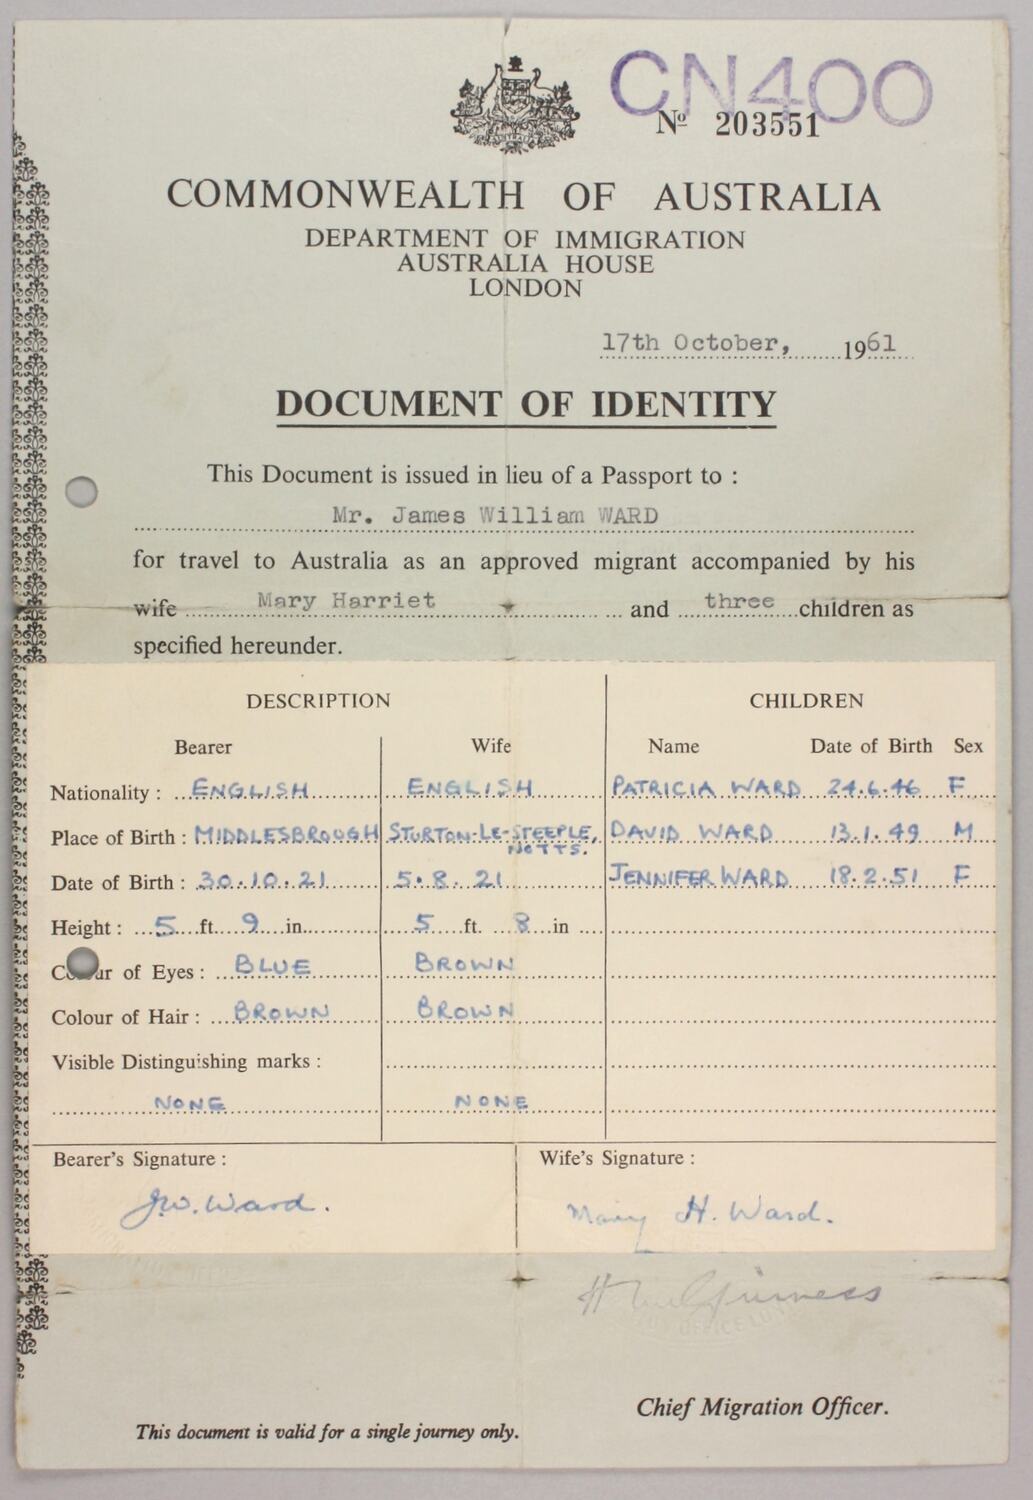 CN400
No 203551
COMMONWEALTH OF AUSTRALIA
DEPARTMENT OF IMMIGRATION
AUSTRALIA HOUSE
LONDON
17th October, 1961
DOCUMENT OF IDENTITY
This Document is issued in lieu of a Passport to :
Mr. James William WARD
for travel to Australia as an approved migrant accompanied by his
wife Mary Harriet and three children as
specified hereunder.
DESCRIPTION CHILDREN
Bearer Wife Name Date of Birth Sex
Nationality : ENGLISH ENGLISH PATRICIA WARD 24.6.46 F
Place of Birth : MIDDLESBROUGH STURTON-LE-STEEPLE, NOTTS. DAVID WARD 13.1.49 M
Date of Birth : 30.10.21 5.8.21 JENNIFER WARD 18.2.51 F
Height : 5 ft. 9 in. 5 ft. 8 in
Colour of Eyes : BLUE BROWN
Colour of Hair : BROWN BROWN
Visible Distinguishing marks :
NONE NONE
Bearer's Signature : Wife's Signature :
J.W. Ward. Mary H. Ward.
Chief Migration Officer.
This document is valid for a single journey only.